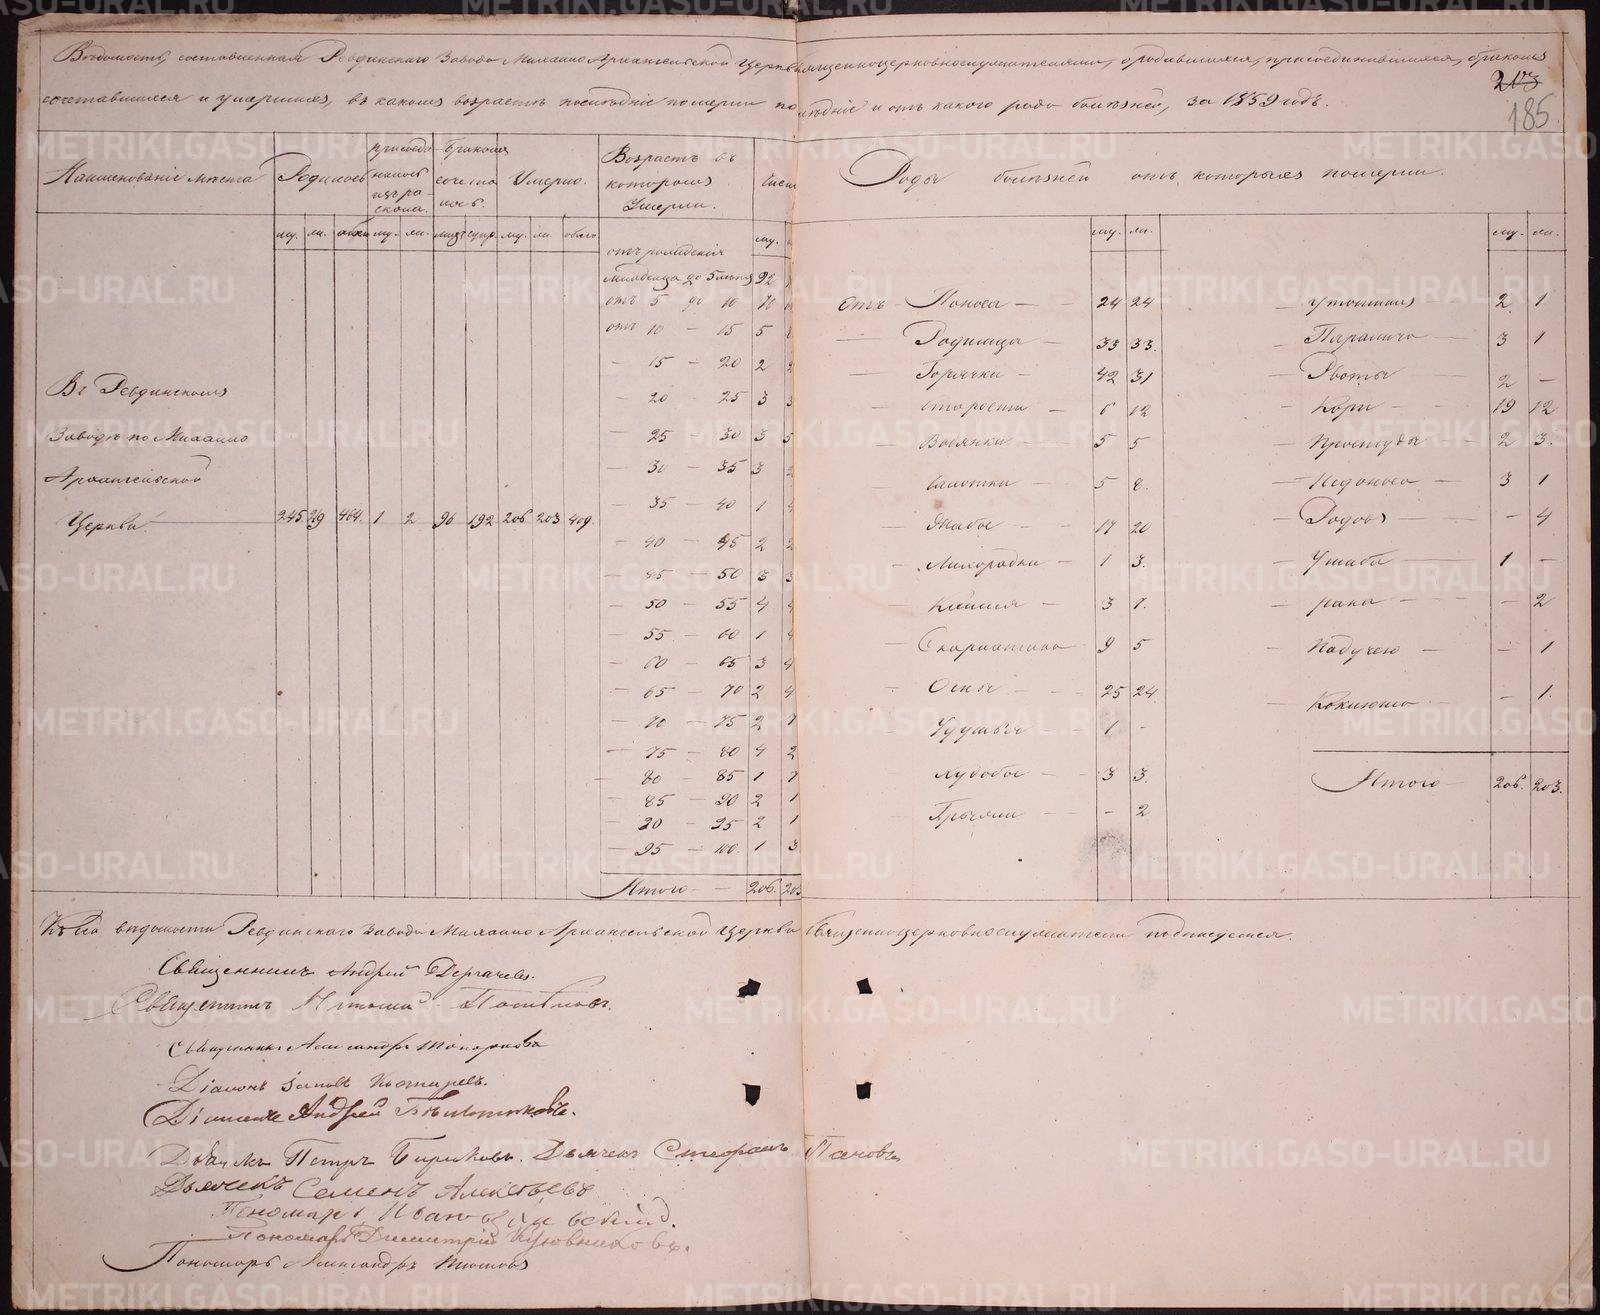 Вѣдомость, составленная Ревдинскаго Завода Михаило Архангельской Церкви священноцерковнослужителями, о родившихся, присоединившихся, бракомъ
213
сочетавшихся и умершихъ, въ какомъ возрастѣ послѣдніе померли послѣдніе и отъ какого рода болѣзней, за 1859 годъ.
185
Наименованіе мѣста Родилось присоединилось изъ раскола. бракомъ сочеталось. Умерло. Возрастъ въ которомъ Умерли. Роды болѣзней отъ которыхъ померли.
му. же. обоего му. же. му. же. обоего му. му. же. му. же.
отъ рожденія
младенца до 5 лѣтъ 92
отъ 5 до 10 10
отъ 10 – 15 5
– 15 – 20 2 2
– 20 – 25 3 3
– 25 – 30 3 5
– 30 – 35 3 2
35 – 40 1 4
– 40 – 45 2 2
– 45 – 50 3 3
– 50 – 55 4 4
– 55 – 60 1 4
– 60 – 65 3 4
– 65 – 70 2 4
– 70 – 75 2 7
– 75 – 80 4 2
– 80 – 85 1 7
– 85 – 90 2 1
– 90 – 95 2 1
– 95 – 100. 1 3
Итого – 206. 203
Въ Ревдинскомъ
Заводѣ по Михаило
Архангельской
Церкви 245. 219 464. 1 2 96 192 206 203 409.
Отъ Поноса – 24 24
– Родимца – 33 33.
– Горячки – 42 31
– старости – 6 12
– Водянки – 5 5
– Чахотки 5 8.
– Жабы – 17 20
– Лихорадки – 1 3.
– Кашля – 3 7.
– Скарлатина 9 5
– Оспы – 25 24
– Удушья – 1 –
– Худобы – 3 3.
– Грыжи – – 2
– Утопшихъ – 2. 1
– Паралича – 3 1
– Рвоты – 2 –
– Кори – 19 12
– Простуды – 2 3.
– Недоноса – 3 1
– Родовъ – – 4
– Ушиба – 1 –
– рака – – 2
– Падучею – – 1
– Коклюша – 1.
Итого – 206. 203.
Къ сей вѣдомости Ревдинскаго Завода Михаило Архангельской Церкви Священноцерковнослужители подписуемся.
Священникъ Андрей Дергачевъ.
Священникъ
Священникъ Александръ Топорковъ
Діаконъ Іаковъ
Діаконъ Андрей
Дьячекъ Петръ Бирюковъ. Дьячекъ Стефанъ Поповъ
Дьячекъ Семенъ Алексѣевъ
Пономарь Иванъ
Пономарь Димитрій
Пономарь Александръ
METRIKI.GASO-URAL.RU